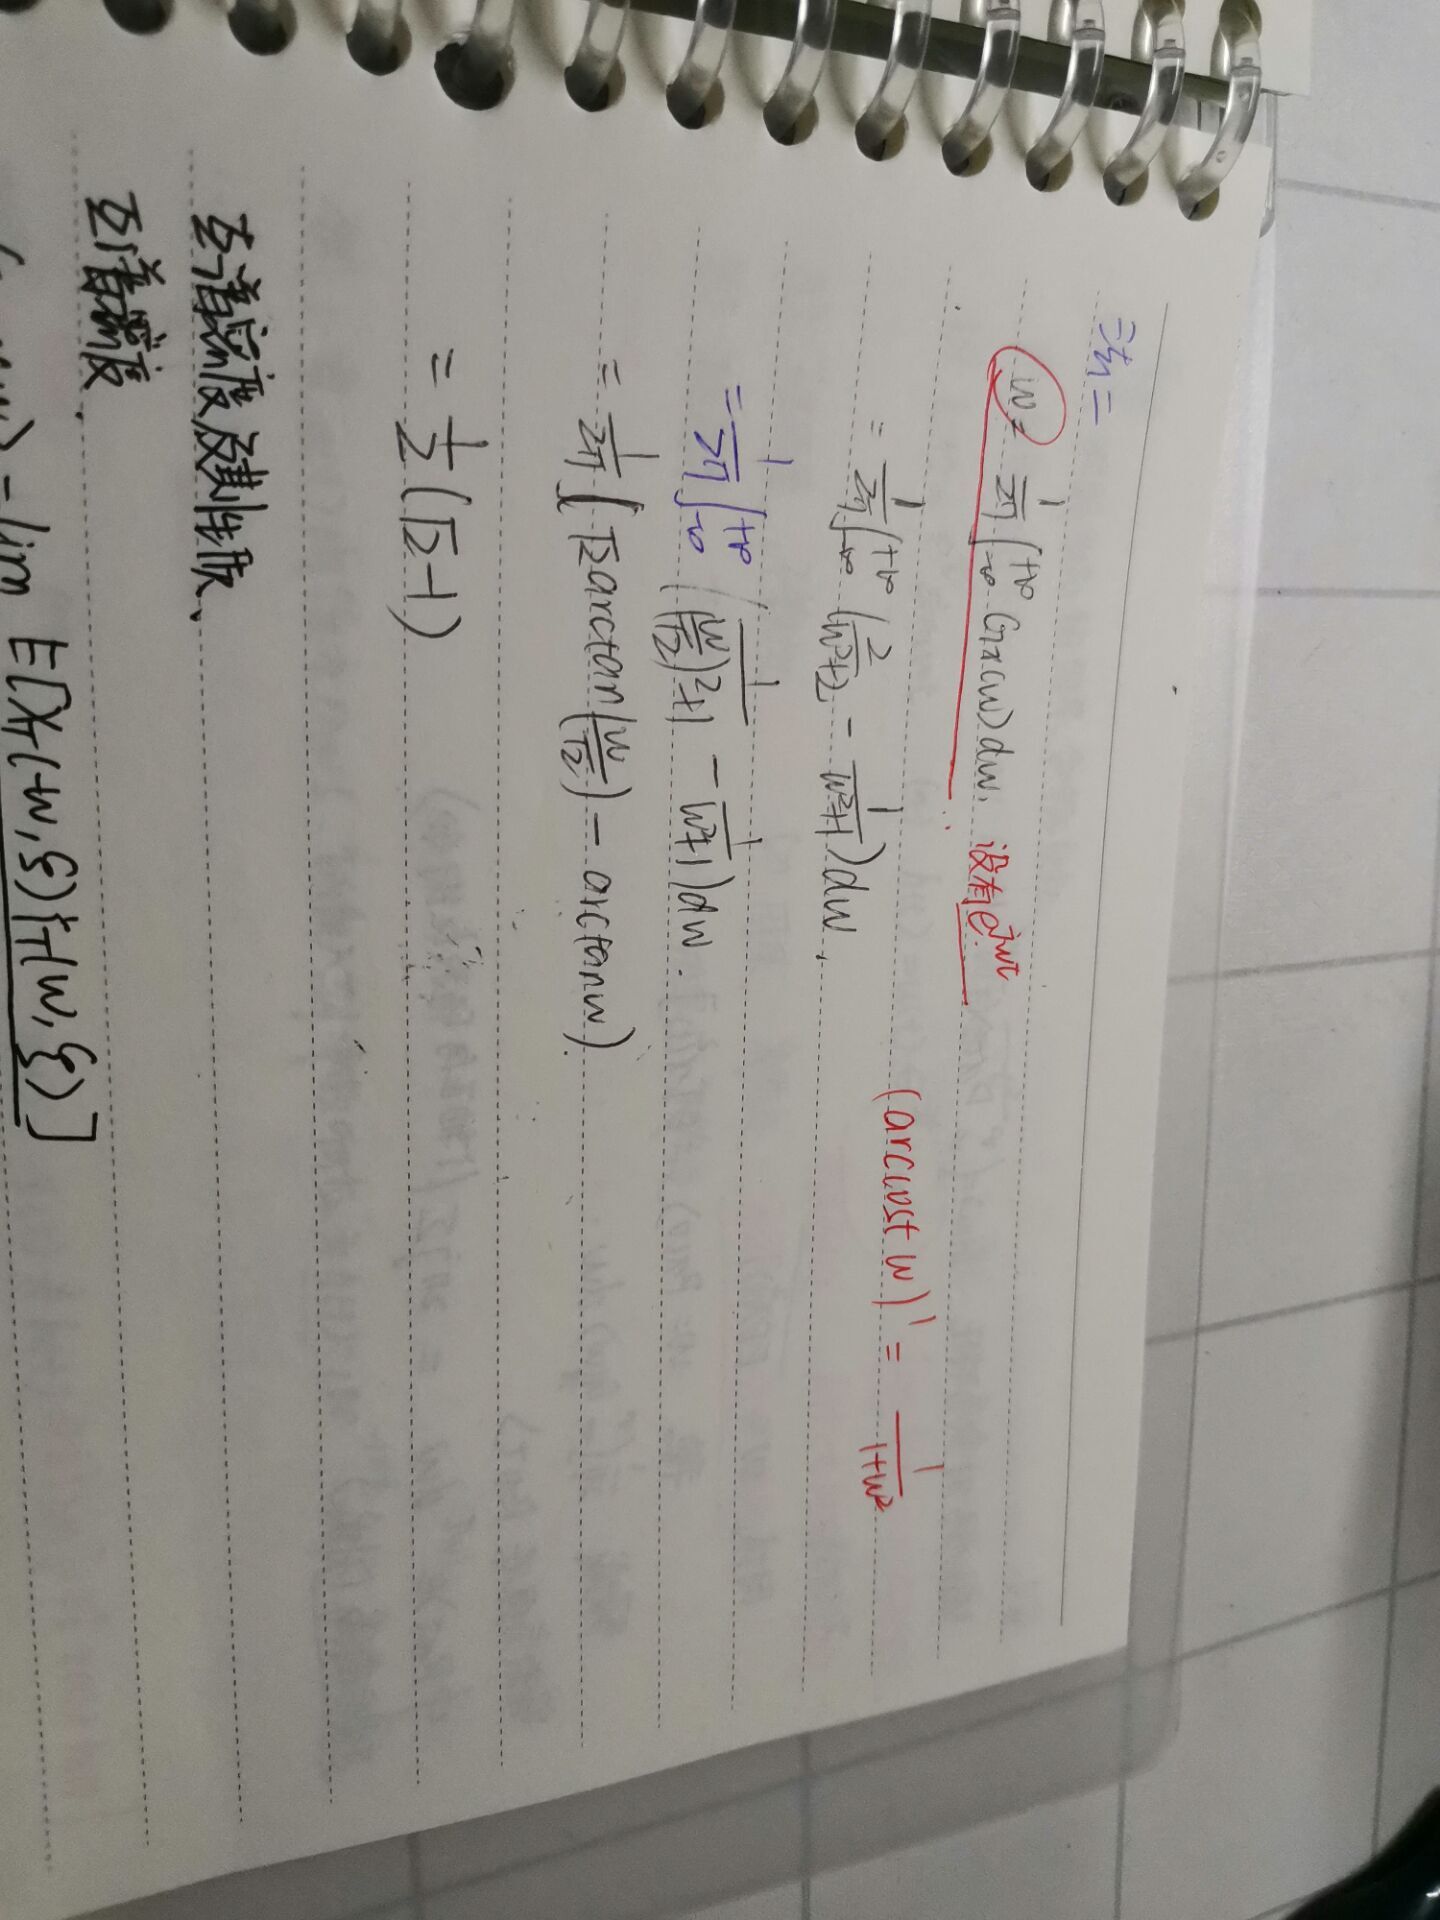 法二
W = \frac{1}{2\pi} \int_{-\infty}^{+\infty} G_x(w) dw. 没有 e^{jwτ}
= \frac{1}{2\pi} \int_{-\infty}^{+\infty} (\frac{2}{w^2+2} - \frac{1}{w^2+1}) dw. (arccost w)' = \frac{1}{1+w^2}
= \frac{1}{2\pi} \int_{-\infty}^{+\infty} (\frac{1}{(\frac{w}{\sqrt{2}})^2+1} - \frac{1}{w^2+1}) dw.
= \frac{1}{2\pi} [\sqrt{2} arctan(\frac{w}{\sqrt{2}}) - arctan w).
= \frac{1}{2} (\sqrt{2} - 1)
互谱密度及其性质、
互谱密度.
= lim \frac{E[X_T(-w, ξ) Y_T(w, ξ)]}{}